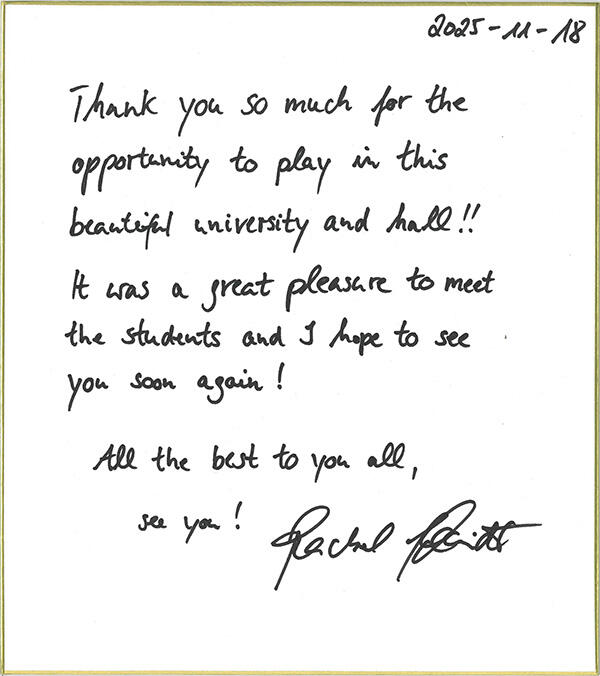 2025-11-18
Thank you so much for the
opportunity to play in this
beautiful university and hall!!
It was a great pleasure to meet
the students and I hope to see
you soon again!
All the best to you all,
see you!
Rachel